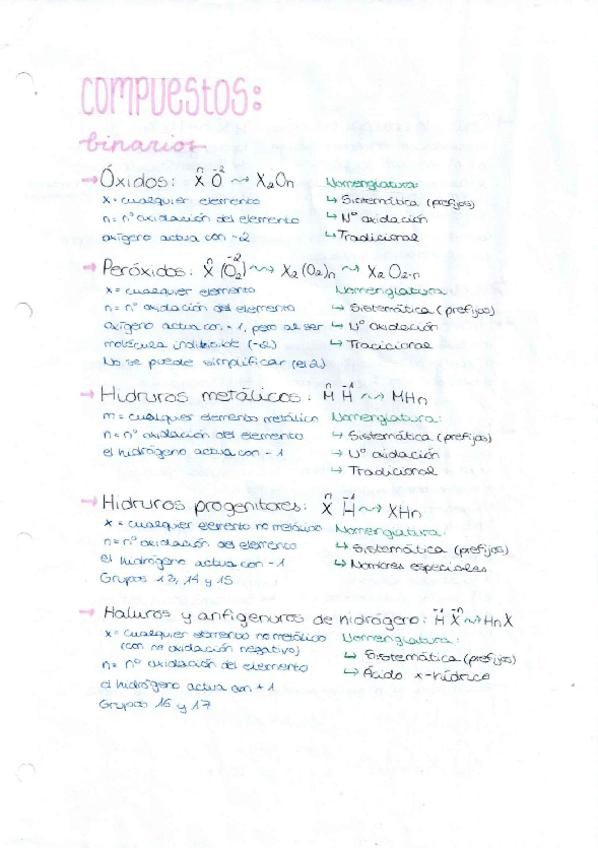 COMPUESTOS:
binarios
→ Óxidos: X^n O^-2 ⇝ X₂On
Nomenglatura:
x = cualquier elemento
↳ Sistemática (prefijos)
n = nº oxidación del elemento
↳ Nº oxidación
oxígeno actua con -2
↳ Tradicional
→ Peróxidos: X^n (O₂)^-2 ⇝ X₂(O₂)n ⇝ X₂O₂·n
x = cualquier elemento
Nomenglatura:
n = nº oxidación del elemento
↳ Sistemática (prefijos)
oxígeno actua con -1, pero al ser
↳ Nº oxidación
molécula indivisible (-2)
↳ Tracicional
No se puede simplificar (el 2)
→ Hidruros metálicos: M^n H^-1 ⇝ MHn
m = cualquier elemento metálico
Nomenglatura:
n = nº oxidación del elemento
↳ Sistemática (prefijos)
el hidrógeno actua con -1
↳ Nº oxidación
↳ Tradicional
→ Hidruros progenitores: X^n H^-1 ⇝ XHn
x = cualquier elemento no metálico
Nomenglatura:
n = nº oxidación del elemento
↳ Sistemática (prefijos)
el hidrógeno actua con -1
↳ Nombres especiales
Grupos 13, 14 y 15
→ Haluros y anfigenuros de hidrógeno: H^+1 X^-n ⇝ HnX
x = cualquier elemento no metálico
Nomenglatura:
(con nº oxidación negativo)
↳ Sistemática (prefijos)
n = nº oxidación del elemento
↳ Ácido x-hídrico
el hidrógeno actua con +1
Grupos 16 y 17